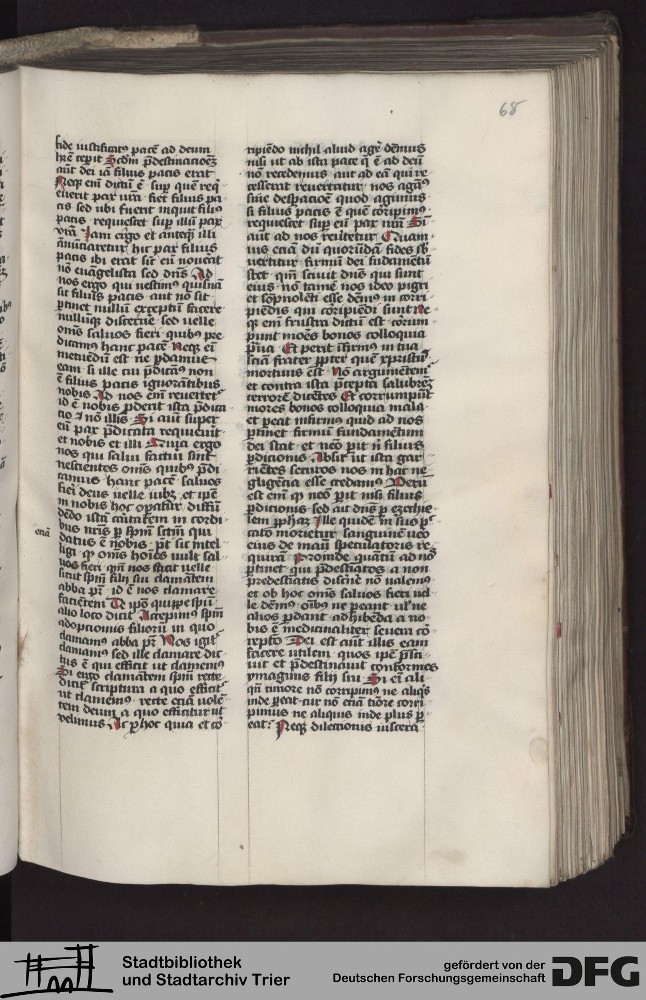 68
fide iustificatus pacē ad deum
hr̄e cepit Scdm̄ p̄destinacionē
aūt dei iā filius pacis erat
Neqꝫ em̄ dictū ē sup quē reqͥ
euerit pax vr̄a fiet filius pa
cis sed ubi fuerit inquit filiꝰ
pacis requiescet sup illū pax
vr̄a Iam ergo et anteqꝫ illi
annūciaretur hic pax filius
pacis ibi erat sic eū nouerat
nō euāgelista sed dn̄s Ad
nos ergo qui nescimus quisnā
sit filius pacis aut nō sit
ꝑtinet nullū exceptū facere
nullūqꝫ discernē sed uelle
om̄s saluos fieri quibus pre
dicamꝰ hanc pacē Neqꝫ eī
metuēdū est ne ꝑdamus
eam si ille cui p̄dicamꝰ non
ē filius pacis ignorātibus
nobis Ad nos em̄ reuertetͬ
id ē nobis ꝓderit ista p̄dica
tio ⁊ nō illis Si aūt super
eū pax p̄dicata requieuit
et nobis et illi Quia ergo
nos qui salui futuri sint
nescientes om̄s quibus p̄di
camus hanc pacē saluos
fieri deus uelle iubꝫ et ipē
in nobis hoc oꝑatur diffū
dēdo istā cāritatem in cordi
bus nr̄is ꝑ spm̄ sc̄tm̄ qui
etiā
datus ē nobis pt̄ sic intel
ligi qͥ om̄s hoīes uult sal
uos fieri qm̄ nos facit uelle
sicut spm̄ filii sui clamātem
abba pr̄ id ē nos clamare
faciētem De ip̄o quippe spū
alio loco dicit Accepimꝰ spm̄
adopcionis filiorū in quo
clamamꝰ abba pr̄ Nos igitͬ
clamamꝰ sed ille clamare dic
tus ē qui efficit ut clamemꝰ
Si ergo clamātem spm̄ recte
dicit scriptura a quo efficitͬ
ut clamemꝰ recte etiā uolē
tem deum a quo efficitur ut
velimus Ac ꝑ hoc quia et cō
ripiēdo nichil aliud agē dēmus
nisi ut ab ista pace q̄ ē ad deū
nō recedemus aut ad eā qui re
cesserat reuertatur nos agamꝰ
sine desperacōe quod agimus
si filius pacis ē quē corripimꝰ
requiescet sup eū pax nr̄a Si
aūt ad nos reuertetur Quam
uis etiā dū quorūdā fides sb
uertitur firmū dei fūdamētū
stet qm̄ sciuit dn̄s qui sunt
eius nō tamē nos ideo pigri
et sōpnolēti esse dēmꝰ in corri
piēdis qui corripiēdi sunt Ne
qꝫ em̄ frustra dictū est corrum
punt mores bonos colloquia
praua Et perit īfirmꝰ in tua
sciā frater ꝓpter quē xp̄us
mortuus est Nō argumētemͬ
et contra ista p̄cepta salubrēqꝫ
terrorē dicētes Et corrumpūt
mores bonos colloquia mala
et pereat infirmus quid ad nos
ꝑtinet firmū fundamētum
dei stat et nēo perit nͥ filius
ꝑdicionis Absit ut ista gar
riētes securos nos in hac ne
gligēcia esse credamꝰ Verū
est em̄ qͥ nēo perit nisi filius
ꝑdicionis sed ait dn̄s ꝑ ezechie
lem ꝓph̄aꝫ Ille quidē in suo pec
cato morietur sanguinē uero
eius de manu speculatoris re
quirā Proinde quātū ad nos
ꝑtinet qui p̄destiatos a non
predestinatis discernē nō ualemꝰ
et ob hoc om̄s saluos fieri uel
le dēmꝰ oībꝰ ne pereant uͣl ne
alios ꝑdant adhibēda a no
bis ē medicinaliter seuera cor
repcio Dei est aūt illis eam
facere utilem quos ipē p̄sci
uit et p̄destinauit conformes
ymaginis filii sui Si em̄ ali
qn̄ timore nō corripimꝰ ne aliqͥs
inde pereat cur nō etiā timore corri
pimus ne aliquis inde plus pe
eat Neqꝫ dilectionis uiscera
Stadtbibliothek
und Stadtarchiv Trier
gefördert von der
Deutschen Forschungsgemeinschaft
DFG